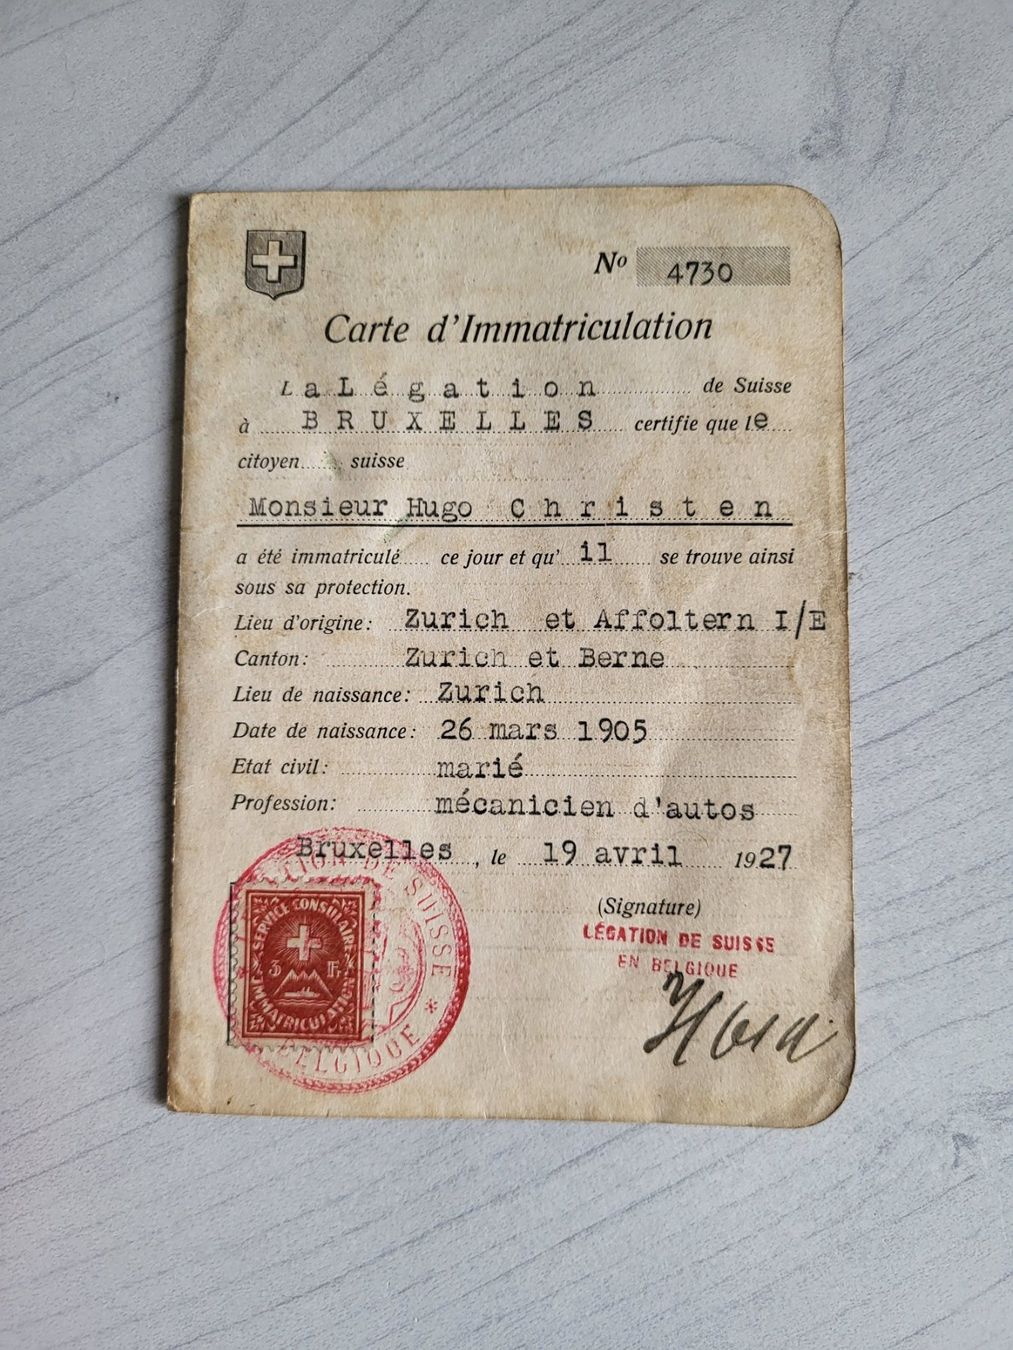 Nº 4730
Carte d'Immatriculation
La Légation de Suisse
à BRUXELLES certifie que le
citoyen suisse
Monsieur Hugo Christen
a été immatriculé ce jour et qu'il se trouve ainsi
sous sa protection.
Lieu d'origine: Zurich et Affoltern I/E
Canton: Zurich et Berne
Lieu de naissance: Zurich
Date de naissance: 26 mars 1905
Etat civil: marié
Profession: mécanicien d'autos
Bruxelles, le 19 avril 1927
(Signature)
LÉGATION DE SUISSE
EN BELGIQUE
LÉGATION DE SUISSE
* BELGIQUE *
SERVICE CONSULAIRE
3 Fr.
IMMATRICULATION